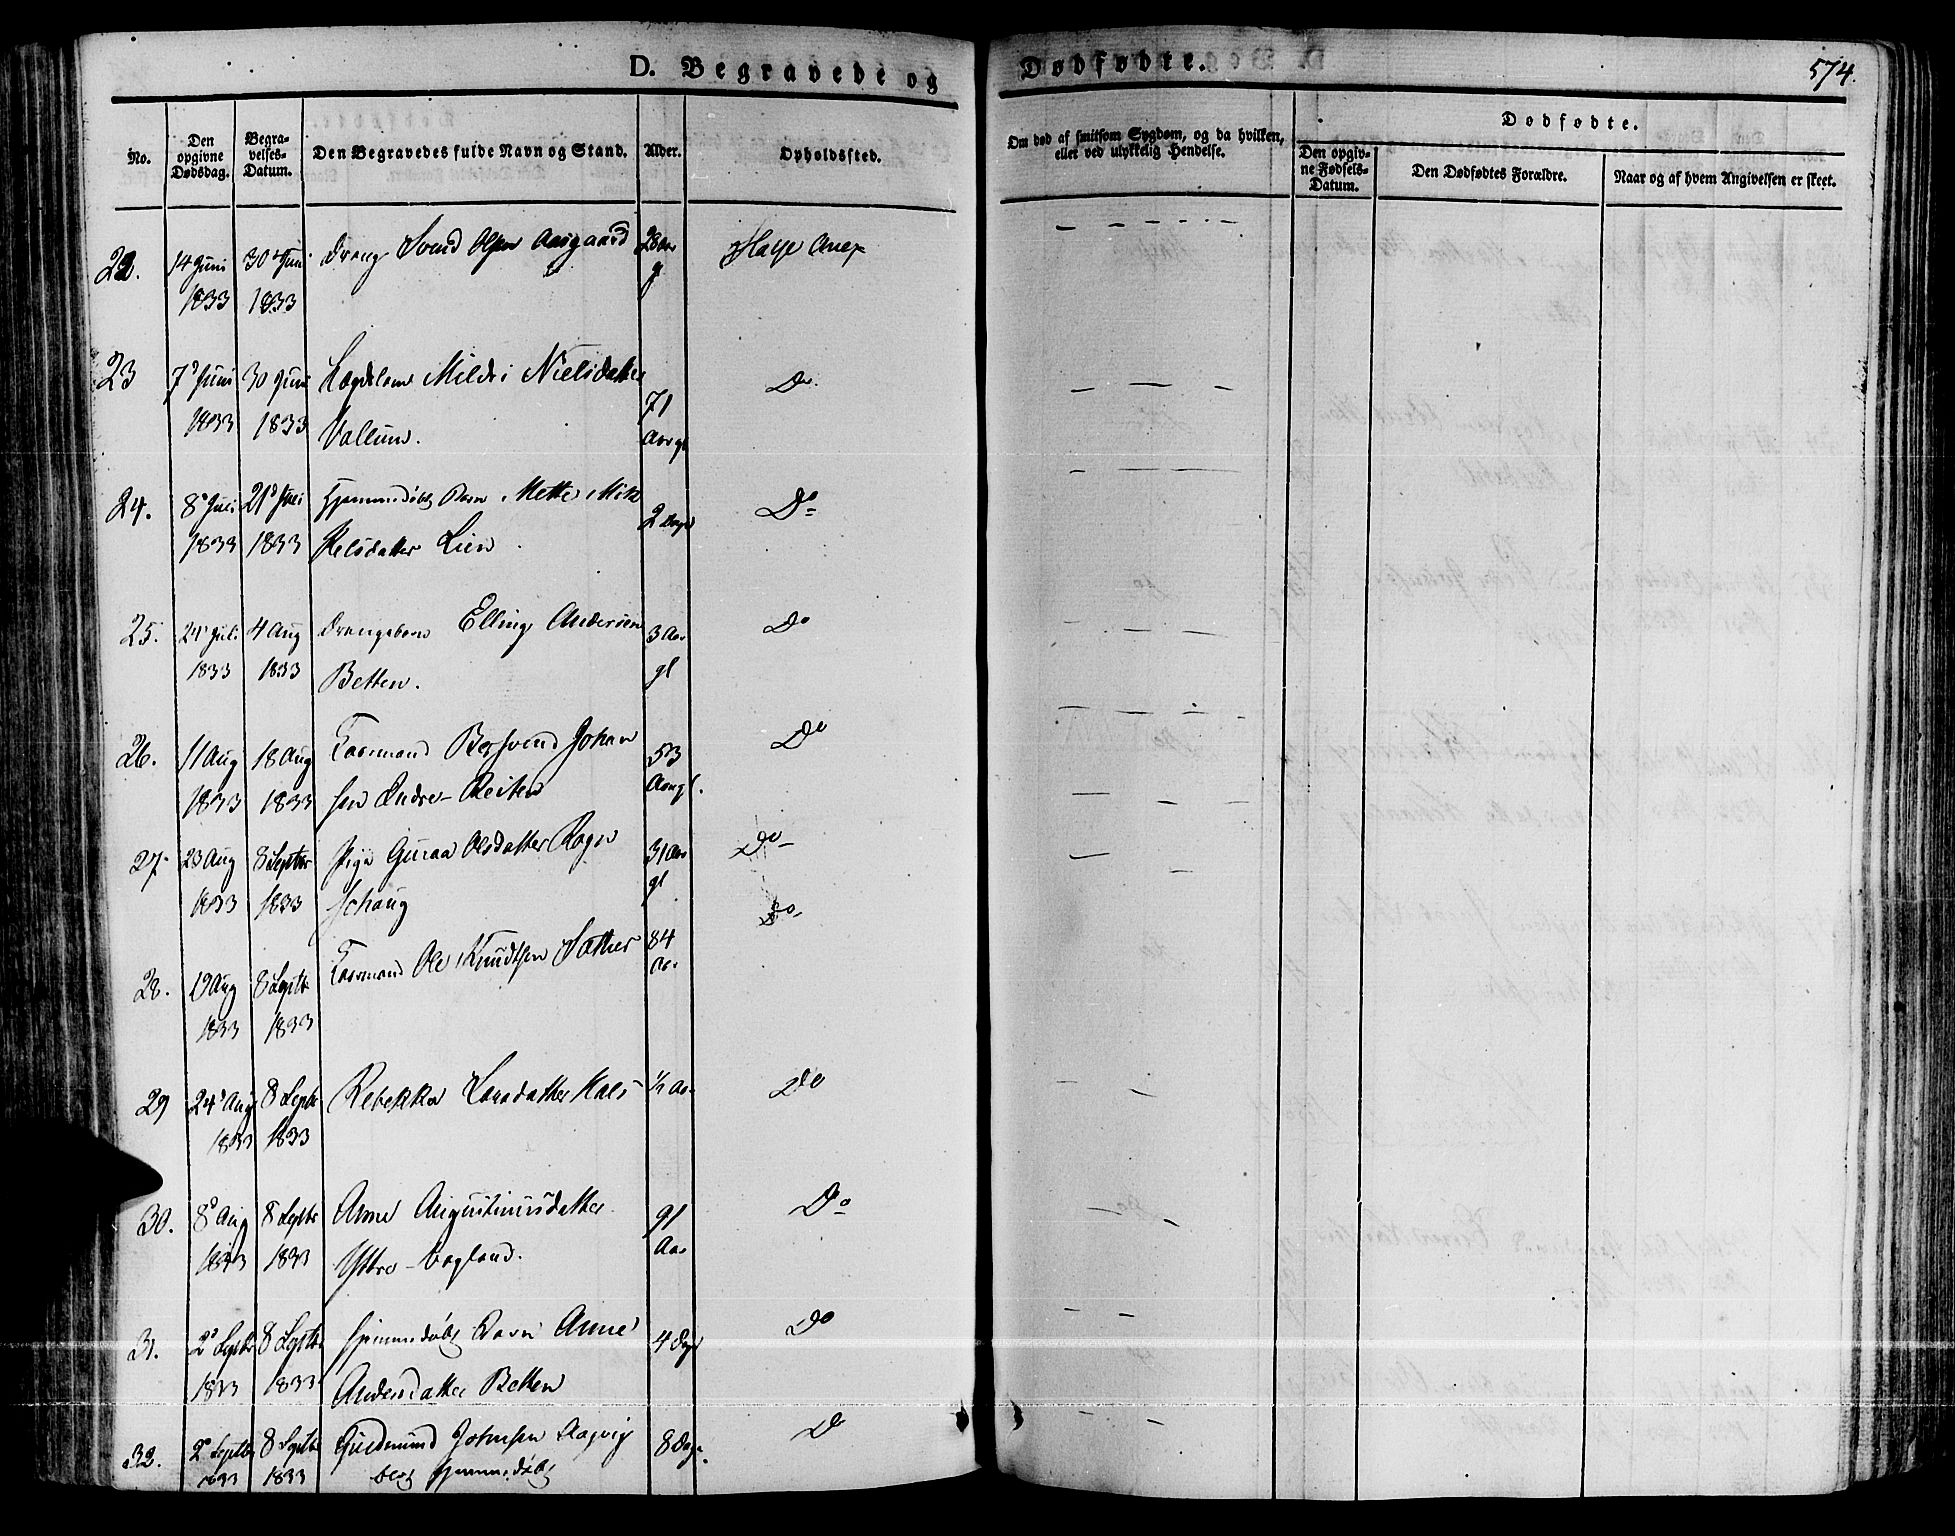 D. Begravede og Dødfødte.
574.
No.
Den opgivne Dødsdag.
Begravelses-Datum.
Den Begravedes fulde Navn og Stand.
Alder.
Opholdssted.
Om død af smitsom Sygdom, og da hvilken, eller ved ulykkelig Hendelse.
Dødfødte.
Den opgivne Fødsels-Datum.
Den Dødfødtes Forældre.
Naar og af hvem Angivelsen er skeet.
22. 14 Juni 30 Juni Dreng Svend Olsen Aasgaard
1833 1833
23 7 Juni 30 Juni Lægdslem Mildri Nielsdatter 71 Do.
1833 1833 Vallum. Aar gl
24. 8 Juli 21 Juli Hjemmedøbt Barn Mette Mik 2 Dage Do
1833 1833 kelsdatter Lien.
25. 24 Juli 4 Aug Drengebarn Elling Andersen 3 Aar Do
1833 1833 Betten. gl
26. 11 Aug 18 Aug Johan 53 Do
1833 1833 sen Indre-Reiten Aar gl.
27. 23 Aug 8 Septbr Pige Guraa Olsdatter 31 Aar Do
1833 1833 gl
28. 19 Aug 8 Septbr Ole Knudtsen Sæther 84 Do
1833 1833 Aar
29 24 Aug 8 Septbr Rebekka Larsdatter ½ Aar Do
1833 1833
30. 8 Aug 8 Septbr Anne Augustinusdatter 91 Do
1833 1833 Yttre-Vagland. Aar
31. 2 Septbr 8 Septbr Hjemmedøbt Barn Anne 4 Dage Do
1833 1833 Andersdatter Betten
32. 2 Septbr 8 Septbr Gudmund Johnsen 8 Dage Do
1833 1833 berg hjemmedøbt